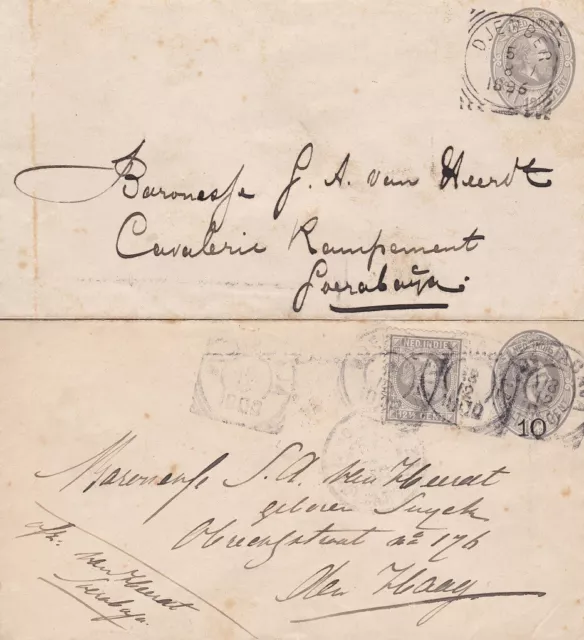 DJEMBER
5
8
1896
CENT
Baronesse J. A. van Heerdt
Cavalerie Kampement
Soerabaya.
NED. INDIE
12½ CENT
10
Baronesse S. A. van Heerdt
geboren Suyck
Obrechtstraat no 176
Den Haag
afz. van Heerdt
Soerabaya.